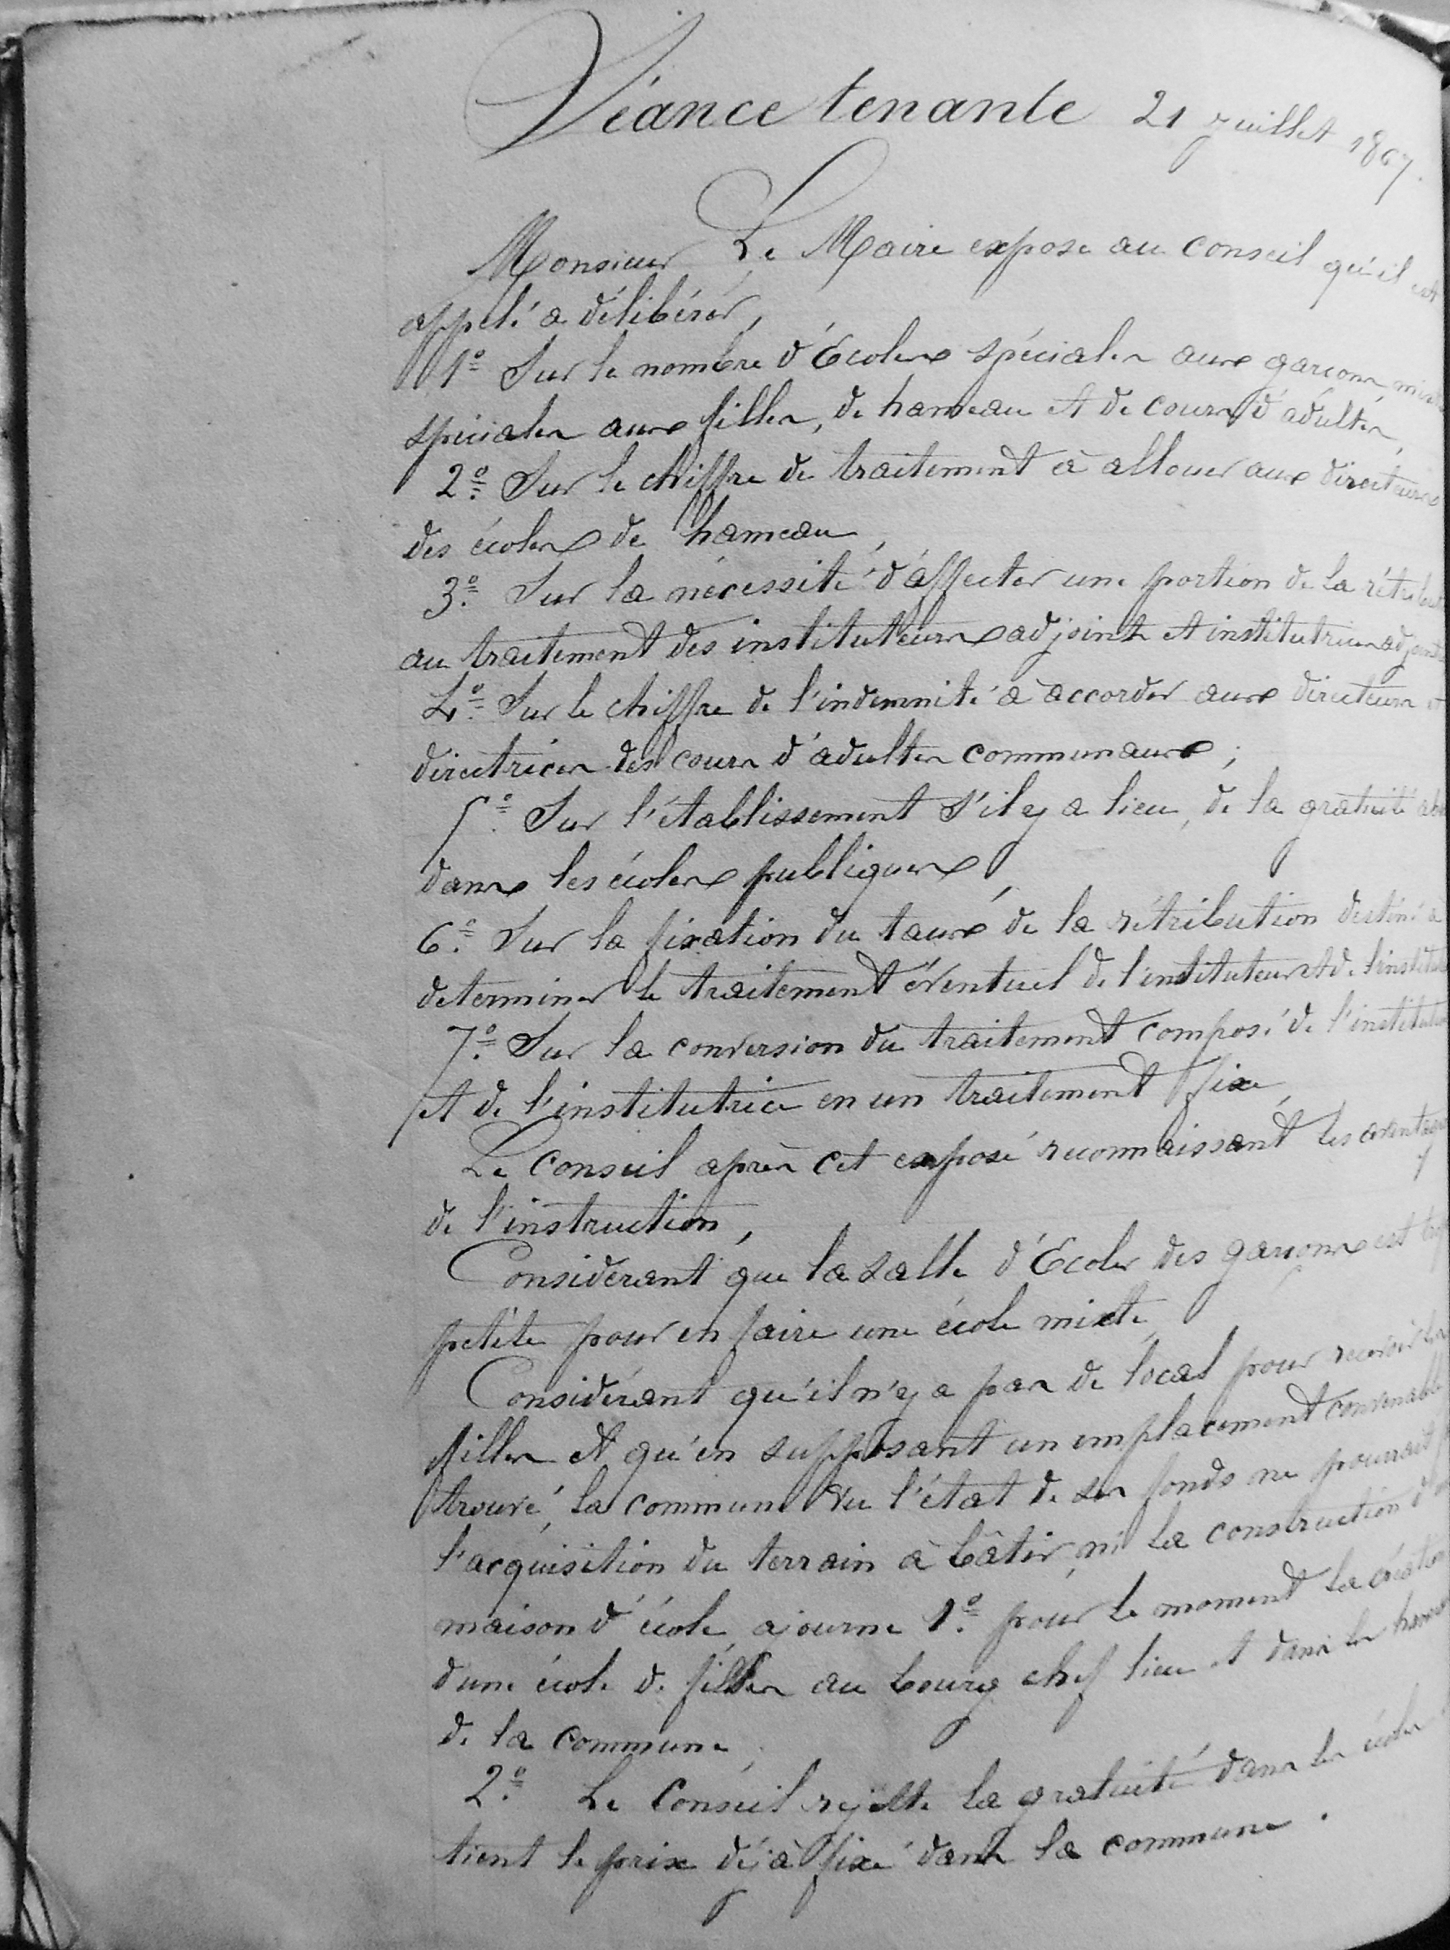 Séance tenante 21 juillet 1867.
Monsieur Le Maire expose au conseil qu'il est
appelé a délibérer,
1º Sur le nombre d'Écoles spéciales aux garçons,
spéciales aux filles, de hameau et de cours d'adultes,
2º Sur le chiffre de traitement à allouer aux directeurs
des écoles de hameau,
3º Sur la nécessité d'affecter une portion de la
au traitement des instituteurs adjoints et institutrices
4º Sur le chiffre de l'indemnité à accorder aux directeurs et
directrices des cours d'adultes communaux;
5º Sur l'établissement s'il y a lieu, de la gratuité
dans les écoles publiques,
6º Sur la fixation du taux de la rétribution destiné a
determiner le traitement éventuel de l'instituteur et de
7º Sur la conversion du traitement composé de
et de l'institutrice en un traitement fixe,
Le Conseil après cet exposé reconnaissant les
de l'instruction,
Considerant que la salle d'Ecole des garçons est
petite pour en faire une école mixte,
Considérant qu'il n'y a pas de local pour recevoir les
filles et qu'en supposant un emplacement convenable
trouvé, la commune vu l'état de ses fonds ne pourrait
l'acquisition du terrain à bâtir, ni la construction
maison d'école, ajourne 1º pour le moment la création
d'une école de filles au bourg chef lieu et dans les
de la commune,
2º Le Conseil rejette la gratuité dans les écoles
tient le prix déjà fixé dans la commune.